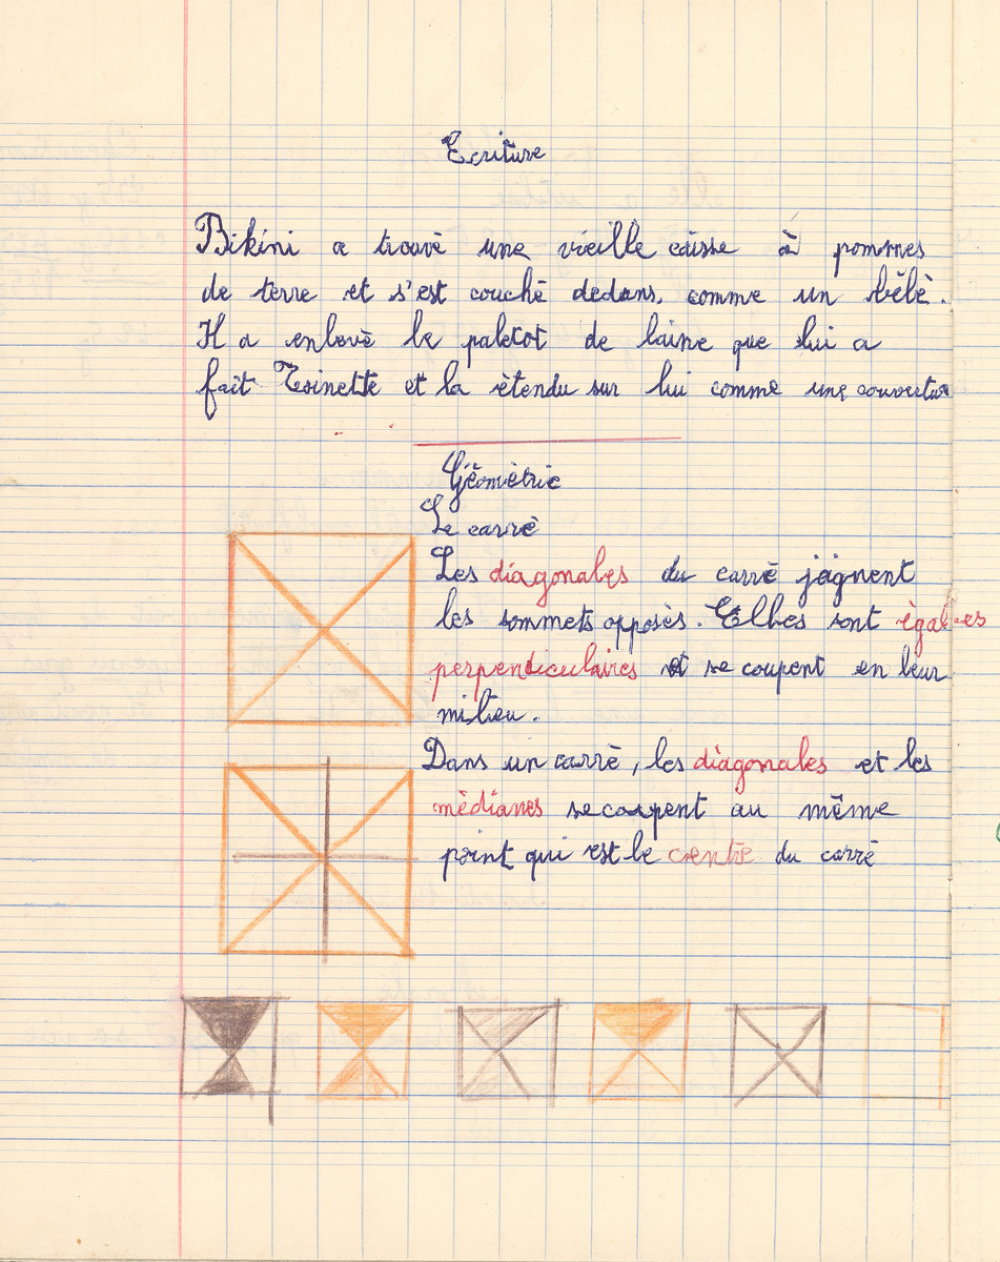 Ecriture
Bikini a trouvé une vieille caisse à pommes
de terre et s'est couché dedans, comme un bébé.
Il a enlevé le paletot de laine que lui a
fait Toinette et la étendu sur lui comme une couverture
Géométrie
Le carré
Les diagonales du carré joignent
les sommets opposés. Elles sont égales
perpendiculaires et se coupent en leur
milieu.
Dans un carré, les diagonales et les
médianes se coupent au même
point qui est le centre du carré